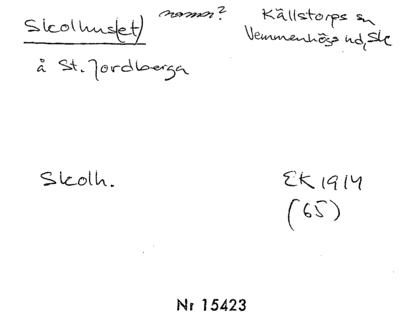 Skolhus(et) namn? Källstorps sn
Vemmenhögs hd, Sk
å St. Jordberga
Skolh. EK 1914
(65)
Nr 15423